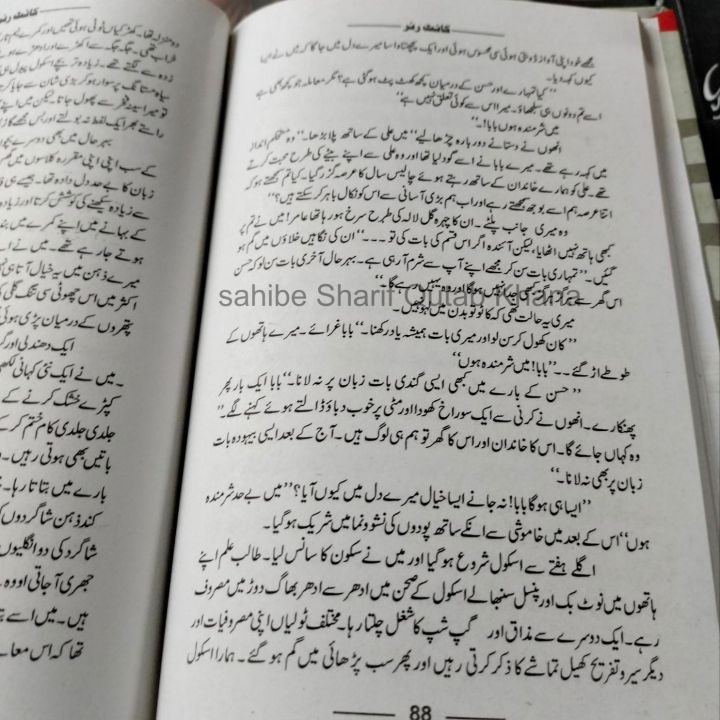 کائٹ رنر
مجھے خود اپنی آواز ڈوبتی ہوئی سی محسوس ہوئی اور ایک پچھتاوا سا میرے دل میں جاگا کہ میں نے یہ
کیوں کہہ دیا۔
"کیا تمہارے اور حسن کے درمیان کچھ کھٹ پٹ ہو گئی ہے؟ مگر معاملہ جو کچھ بھی ہے
اسے تم دونوں ہی سلجھاؤ۔ میرا اس سے کوئی تعلق نہیں ہے"
میں شرمندہ ہوں بابا!۔"
انھوں نے دستانے دوبارہ چڑھا لیے" میں علی کے ساتھ پلا بڑھا۔" وہ مستحکم انداز
میں کہہ رہے تھے۔ میرے بابا نے اسے گود لیا تھا اور وہ علی سے اپنے بیٹے کی طرح محبت کرتے
تھے۔ علی کو ہمارے خاندان کے ساتھ رہتے ہوئے چالیس سال کا عرصہ گزر گیا۔ کیا تم سمجھتے ہو کہ
اتنا عرصہ ہم اسے بوجھ سمجھتے رہے اور اب ہم بڑی آسانی سے اس کو نکال باہر کر سکتے ہیں؟"
وہ میری جانب پلٹے۔ ان کا چہرہ گل لالہ کی طرح سرخ ہو رہا تھا عامر! میں نے تم پر
کبھی ہاتھ نہیں اٹھایا، لیکن آئندہ اگر اس قسم کی بات کی تو۔۔۔" ان کی نگاہیں خلاؤں میں گم ہو
گئیں۔" تمہاری بات سن کر مجھے اپنے آپ سے شرم آ رہی ہے۔ بہر حال آخری بات سن لو کہ حسن
اس گھر سے ہرگز ہرگز کبھی جدا نہیں ہوگا اور وہ یہیں رہے گا۔"
sahibe Sharif Qutab Khana
میری یہ حالت تھی کہ کاٹو تو بدن میں لہو نہیں۔
"کان کھول کر سن لو اور میری بات ہمیشہ یاد رکھنا۔" بابا غرائے۔ میرے ہاتھوں کے
طوطے اڑ گئے۔۔ "بابا! میں شرمندہ ہوں"
"حسن کے بارے میں کبھی ایسی گندی بات زبان پر نہ لانا۔" بابا ایک بار پھر
پھنکارے۔ انھوں نے کرنی سے ایک سوراخ کھودا اور مٹی پر خوب دباؤ ڈالتے ہوئے کہنے لگے۔"
وہ کہاں جائے گا۔ اس کا خاندان اور اس کا گھر تو ہم ہی لوگ ہیں۔ آج کے بعد ایسی بیہودہ بات
زبان پر بھی نہ لانا۔"
"ایسا ہی ہوگا بابا! نہ جانے ایسا خیال میرے دل میں کیوں آیا؟" "میں بے حد شرمندہ
ہوں" اس کے بعد میں خاموشی سے انکے ساتھ پودوں کی نشوونما میں شریک ہو گیا۔
اگلے ہفتے سے اسکول شروع ہو گیا اور میں نے سکون کا سانس لیا۔ طالب علم اپنے
ہاتھوں میں نوٹ بک اور پنسل سنبھالے اسکول کے صحن میں ادھر سے ادھر بھاگ دوڑ میں مصروف
رہے۔ ایک دوسرے سے مذاق اور گپ شپ کا شغل چلتا رہا۔ مختلف ٹولیاں اپنی مصروفیات اور
دیگر سیر و تفریح کھیل تماشے کا ذکر کرتی رہیں اور پھر سب پڑھائی میں گم ہو گئے۔ ہمارا اسکول
88
کائٹ رنر
دو منزلہ تھا۔ کھڑکیاں ٹوٹی ہوئی تھیں اور کمرے
خراب تھی۔ جگہ جگہ سے اکھڑے اور ادھڑے ہوئے
زدہ سے لگتے تھے۔ زیادہ تر بچے اسکول پیدل ہی
سیاہ مستانگ پر سوار ہو کر بڑی شان سے جایا کرتا
تو میرا سینہ فخر سے پھول جاتا۔ لیکن میں اپنے
راستے بھر ایک لفظ نہ بولتے اور اس
بہر حال میں بھی دوسرے بچوں
کے سب اپنی اپنی مقررہ کلاسوں میں
زبان کا بے حد دل دادہ تھا۔ جیسے ہی
سے زیادہ سیکھنے کی کوشش کرتا اور زیادہ
کے بہانے میں اپنے کمرے میں بند
ہوتے جا رہے تھے۔ میں نے اپنے
میرے ذہن میں یہ خیال آتا ہی
اکثر میں اس چھوٹی سی تنگ گلی
پتھروں کے درمیان پڑی ہوئی
ایک دھندلی اور
۔ میں نے ایک نئی کہانی لکھی
کپڑے خشک کرنے کے
جلدی جلدی کام ختم کر کے
باتیں بھی ہوتی رہیں۔
بارے میں بتاتا رہا۔
کند ذہن شاگردوں کو
شاگرد کی دو انگلیوں
جھری آ جاتی اور وہ
ہیں۔ میں اسے
تھا کہ اس معاملے